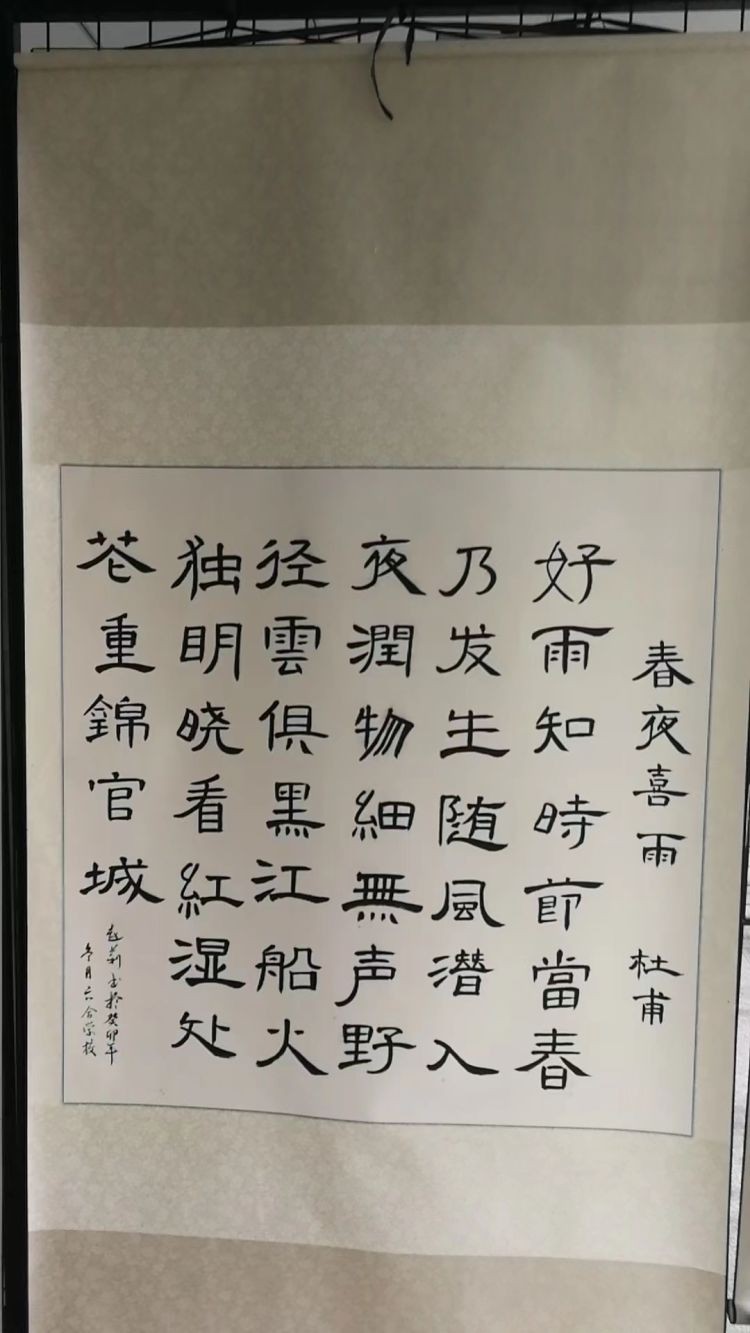 春夜喜雨 杜甫
好雨知時節當春
乃发生随风潜入
夜潤物細無声野
径雲俱黑江船火
独明晓看紅湿处
花重錦官城
赵莉书於癸卯年
冬月六合学校